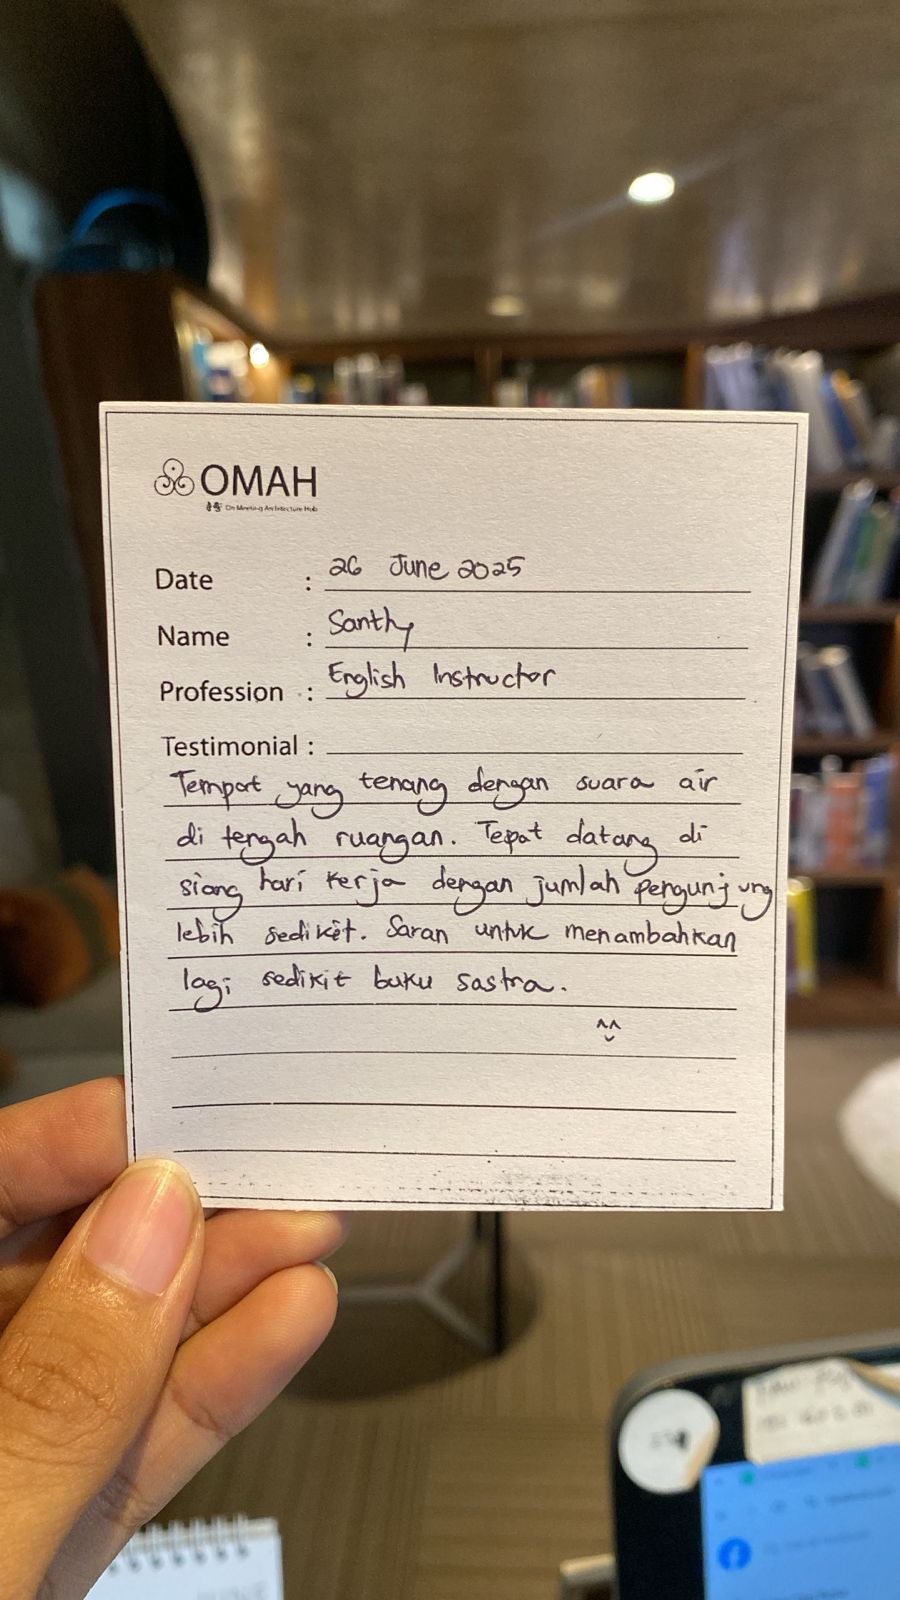 OMAH
On Meeting Architecture Hub
Date : 26 June 2025
Name : Santhy
Profession : English Instructor
Testimonial :
Tempat yang tenang dengan suara air
di tengah ruangan. Tepat datang di
siang hari kerja dengan jumlah pengunjung
lebih sedikit. Saran untuk menambahkan
lagi sedikit buku sastra.
^^